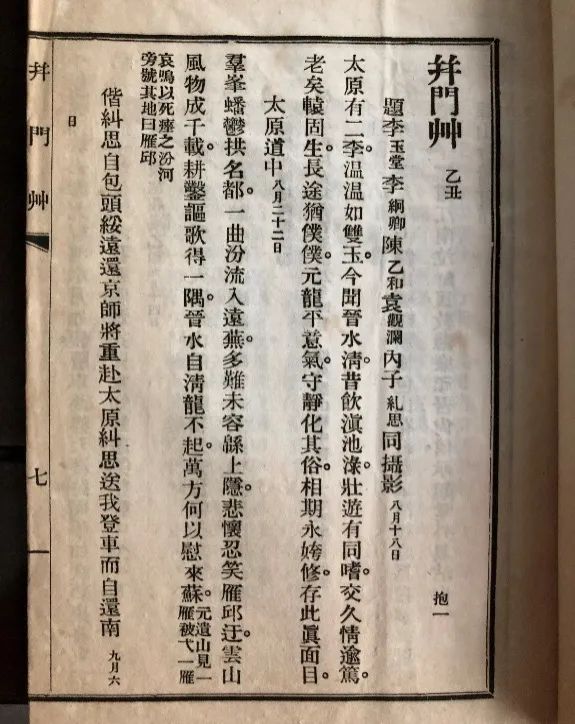 幷門艸 乙丑
抱一
題李玉堂李綱卿陳乙和袁觀瀾內子糺思同攝影 八月十八日
太原有二李溫溫如雙玉今聞晉水清昔飲滇池淥壯遊有同嗜交久情逾篤
老矣轅固生長途猶僕僕元龍平意氣守靜化其俗相期永姱修存此眞面目
太原道中 八月二十二日
羣峯蟠鬱拱名都一曲汾流入遠蕪多難未容緜上隱悲懷忍笑雁邱迂雲山
風物成千載耕鑿謳歌得一隅晉水自清龍不起萬方何以慰來蘇 元遺山見一雁被弋一雁
哀鳴以死瘞之汾河旁號其地曰雁邱
偕糾思自包頭綏遠還京師將重赴太原糾思送我登車而自還南 九月六
日
幷門艸
七